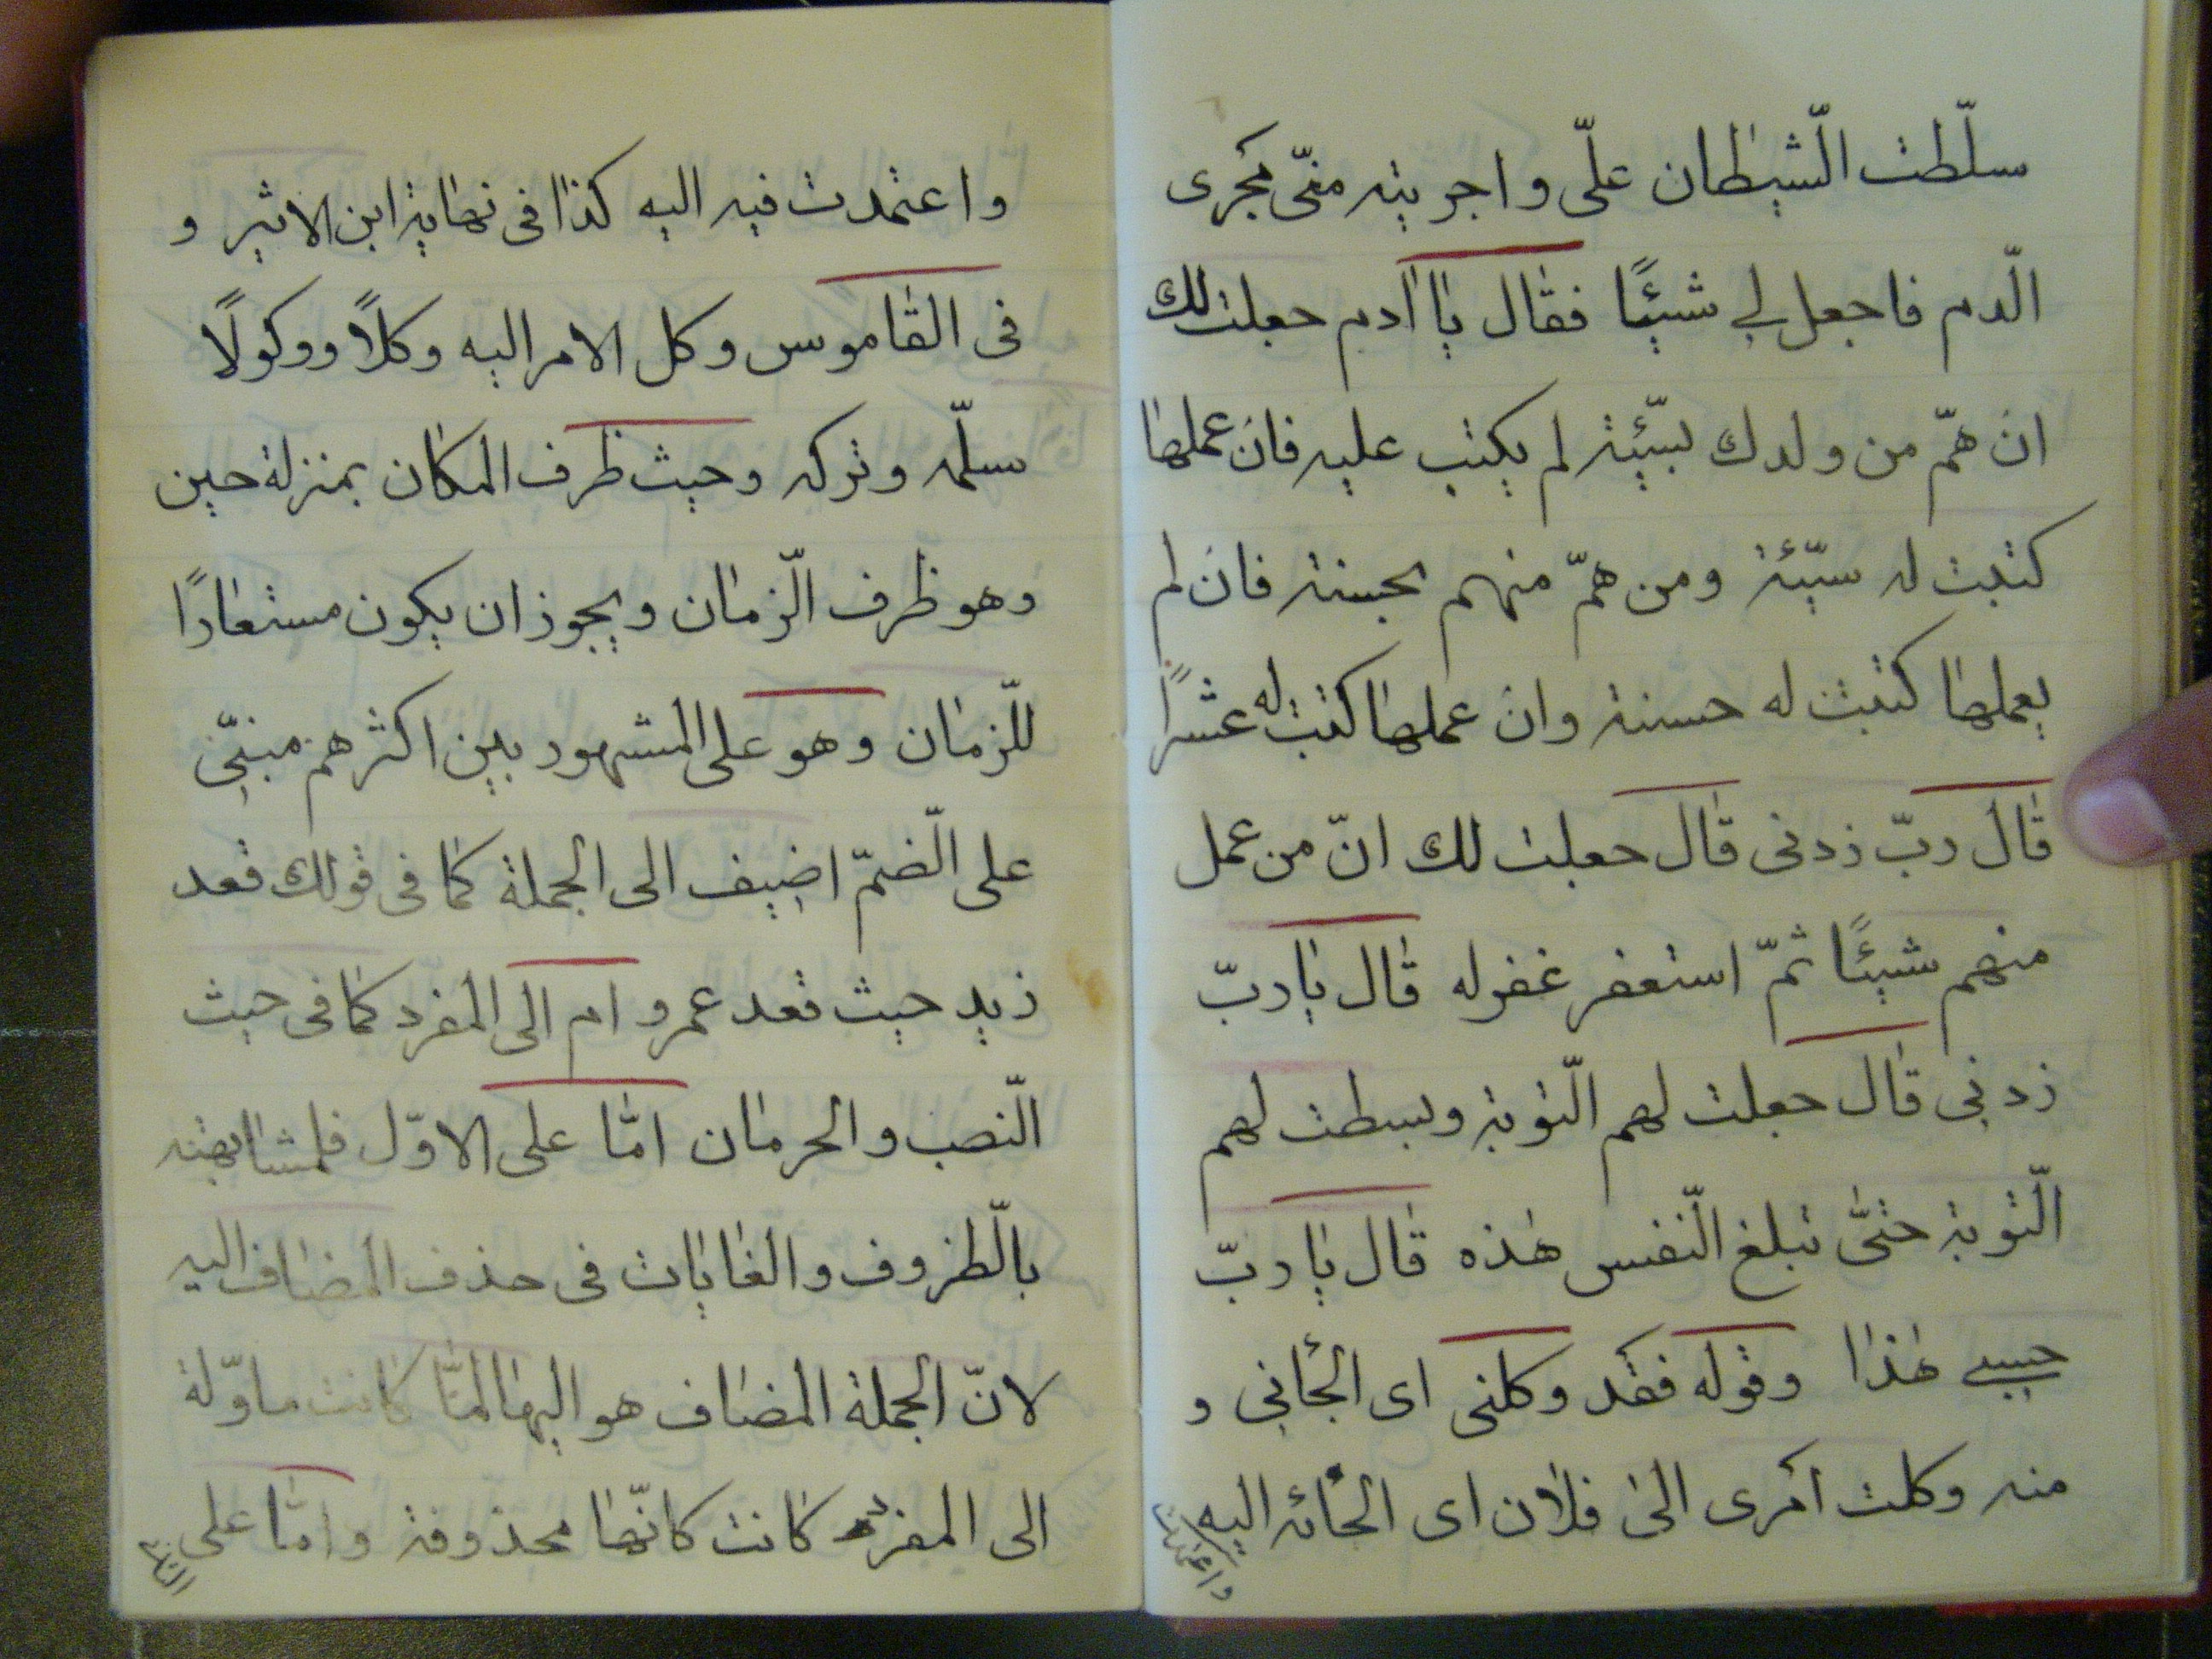 سلّطت الّشيطان علىّ واجريته منّى مجرى
الّدم فاجعل لى شيئًا فقال يا اٰدم جعلت لك
ان همّ من ولدك بسيّئة لم يكتب عليه فان عملها
كتبت له سيّئة ومن همّ منهم بحسنة فان لم
يعملها كتبت له حسنة وان عملها كتبت له عشرًا
قال ربّ زدنى قال جعلت لك انّ من عمل
منهم شيئًا ثمّ استغفر غفر له قال يا ربّ
زدنى قال جعلت لهم الّتوبة وبسطت لهم
الّتوبة حتّى تبلغ الّنفس هٰذه قال يا ربّ
حسبى هٰذا وقوله فقد وكلنى اى الجأنى و
منه وكلت امرى الى فلان اى الجأته اليه
واعتمدت
واعتمدت فيه اليه كذا فى نهاية ابن الاثير و
فى القاموس وكل الامر اليه وكلاً ووكولًا
سلّمه وتركه وحيث ظرف المكان بمنزلة حين
وهو ظرف الّزمان ويجوز ان يكون مستعارًا
للّزمان وهو على المشهور بين اكثرهم مبنىّ
على الّضمّ اضيف الى الجملة كما فى قولك قعد
زيد حيث قعد عمرو ام الى المفرد كما فى حيث
الّنصب والحرمان امّا على الاوّل فلمشابهته
بالّظروف والغايات فى حذف المضاف اليه
لانّ الجملة المضاف هو اليها لمّا كانت ماوّلة
الى المفرد كانت كانّها محذوفة وامّا على